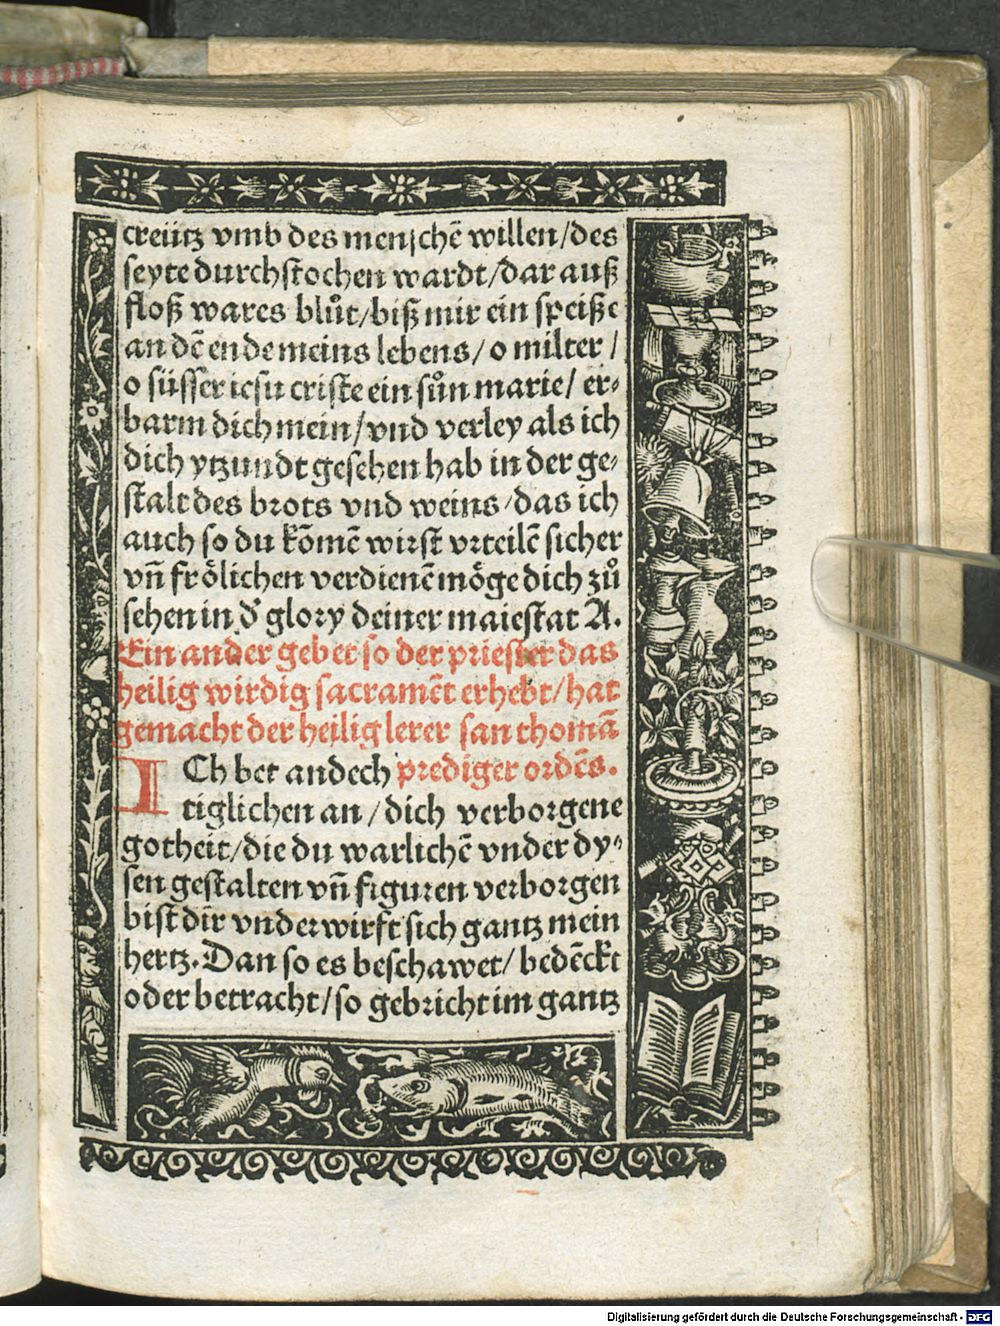 creütz vmb des menschē willen/des
seyte durchstochen wardt/dar auß
floß wares blůt/biß mir ein speiße
an dē ende meins lebens/o milter/
o süsser iesu criste ein sůn marie/er-
barm dich mein/vnd verley als ich
dich ytzundt gesehen hab in der ge-
stalt des brots vnd weins/das ich
auch so du kōmē wirst vrteilē sicher
vn̄ frölichen verdienē möge dich zů
sehen in d̄ glory deiner maiestat A.
Ein ander gebet so der priester das
heilig wirdig sacramēt erhebt/hat
gemacht der heilig lerer san thomā
ICh bet andech prediger ordēs.
tiglichen an/dich verborgene
gotheit/die du warlichē vnder dy-
sen gestalten vn̄ figuren verborgen
bist dir vnderwirft sich gantz mein
hertz. Dan so es beschawet/bedēckt
oder betracht/so gebricht im gantz
Digitalisierung gefördert durch die Deutsche Forschungsgemeinschaft - DFG